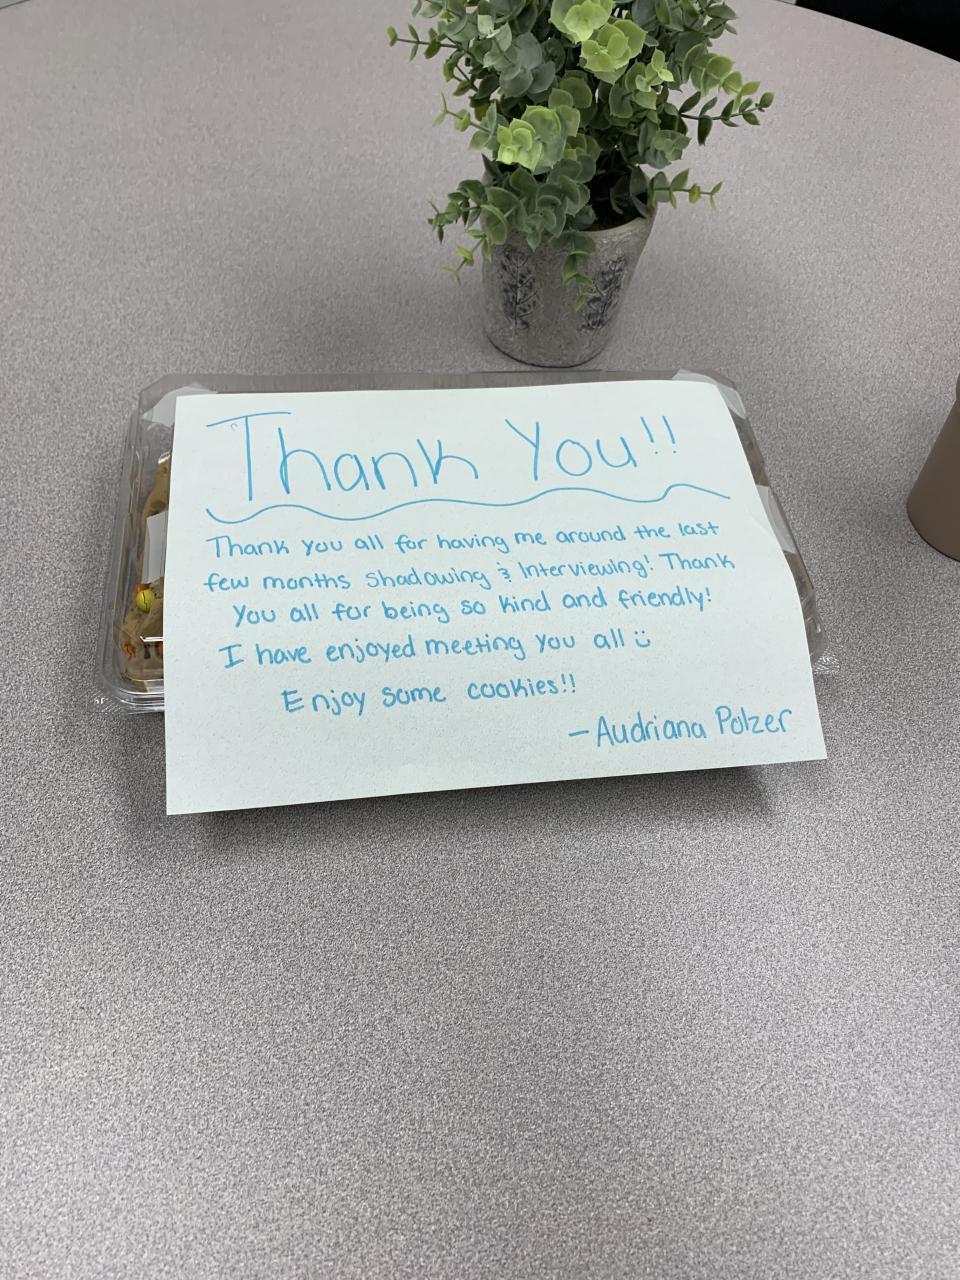 Thank You!!
Thank you all for having me around the last
few months shadowing & Interviewing! Thank
you all for being so kind and friendly!
I have enjoyed meeting you all ü
Enjoy some cookies!!
– Audriana Polzer